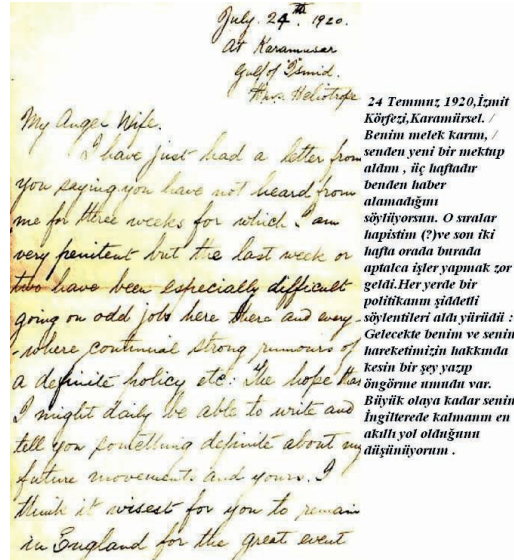 July. 24th. 1920.
At Karamusar
Gulf of Ismid.
H.M.S. Heliotrope
My Angel Wife.
I have just had a letter from
you saying you have not heard from
me for three weeks for which I am
very penitent but the last week or
two have been especially difficult
going on odd jobs here there and every-
-where continual strong rumours of
a definite policy etc: The hope that
I might daily be able to write and
tell you something definite about my
future movements and yours. I
think it wisest for you to remain
in England for the great event
24 Temmuz 1920,İzmit
Körfezi,Karamürsel. /
Benim melek karım, /
senden yeni bir mektup
aldım , üç haftadır
benden haber
alamadığını
söylüyorsun. O sıralar
hapistim (?)ve son iki
hafta orada burada
aptalca işler yapmak zor
geldi.Her yerde bir
politikanın şiddetli
söylentileri aldı yürüdü :
Gelecekte benim ve senin
hareketimizin hakkında
kesin bir şey yazıp
öngörme umudu var.
Büyük olaya kadar senin
İngilterede kalmanın en
akıllı yol olduğunu
düşünüyorum .